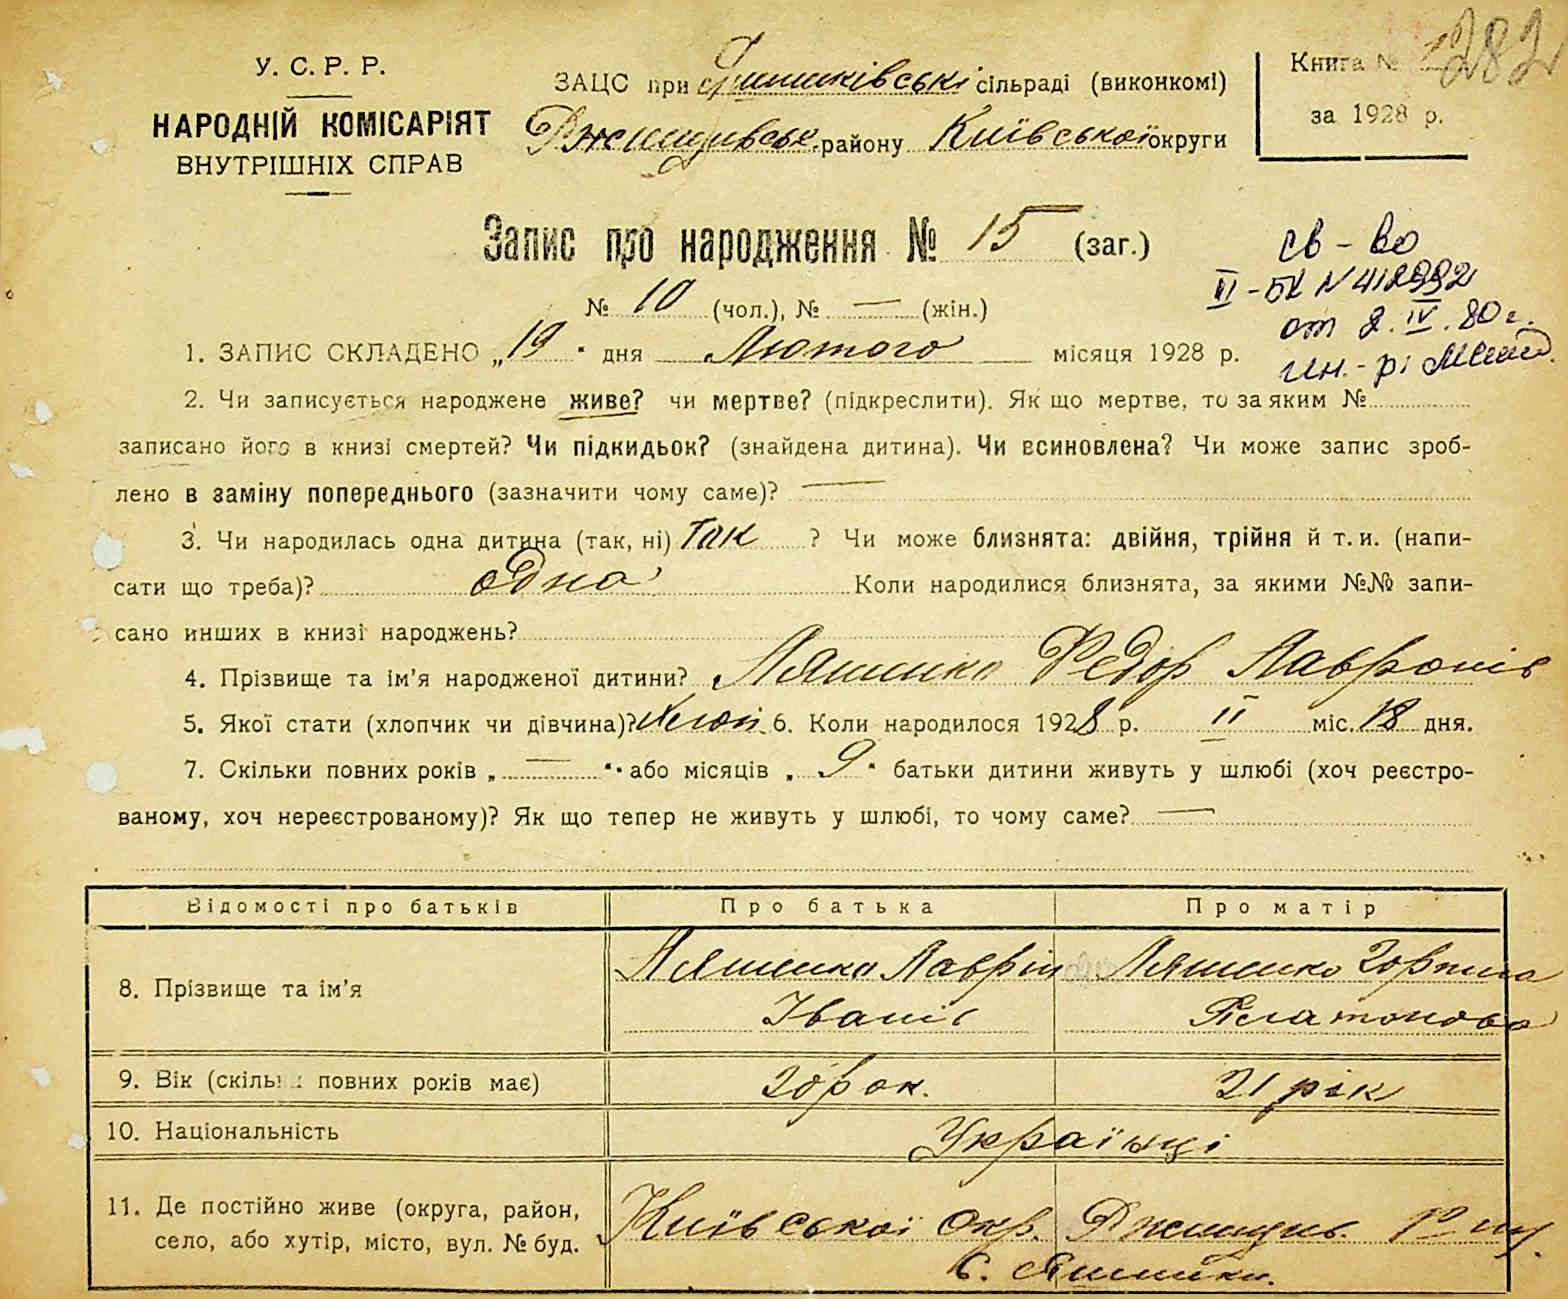 У. С. Р. Р.
НАРОДНІЙ КОМІСАРІЯТ
ВНУТРІШНІХ СПРАВ
ЗАЦС при сільраді (виконкомі)
Ржищівськ. району Київської округи
Книга №
282
за 1928 р.
Запис про народження № 15 (заг.)
№ 10 (чол.), № — (жін.)
св-во
II-БК N 412992
от 2.IV.80 г.
1. ЗАПИС СКЛАДЕНО „19" дня Лютого місяця 1928 р.
2. Чи записується народжене живе? чи мертве? (підкреслити). Як що мертве, то за яким №
записано його в книзі смертей? Чи підкидьок? (знайдена дитина). Чи всиновлена? Чи може запис зроб-
лено в заміну попереднього (зазначити чому саме)? —
3. Чи народилась одна дитина (так, ні) Так ? Чи може близнята: двійня, трійня й т. и. (напи-
сати що треба)? одна Коли народилися близнята, за якими №№ запи-
сано инших в книзі народжень?
4. Прізвище та ім'я народженої дитини? Ляшенко Федор Лавронів
5. Якої стати (хлопчик чи дівчина)? Хлоп. 6. Коли народилося 1928 р. II міс. 18 дня.
7. Скільки повних років „ — " або місяців „ 9 " батьки дитини живуть у шлюбі (хоч реєстро-
ваному, хоч нереєстрованому)? Як що тепер не живуть у шлюбі, то чому саме? —
Відомості про батьків Про батька Про матір
8. Прізвище та ім'я Ляшенко Лаврін Ляшенко Горпина
Іванів Платонова
9. Вік (скільки повних років має) 20 рок. 21 рік
10. Національність Українці
11. Де постійно живе (округа, район, Київської Окр. Ржищив.
село, або хутір, місто, вул. № буд. с.